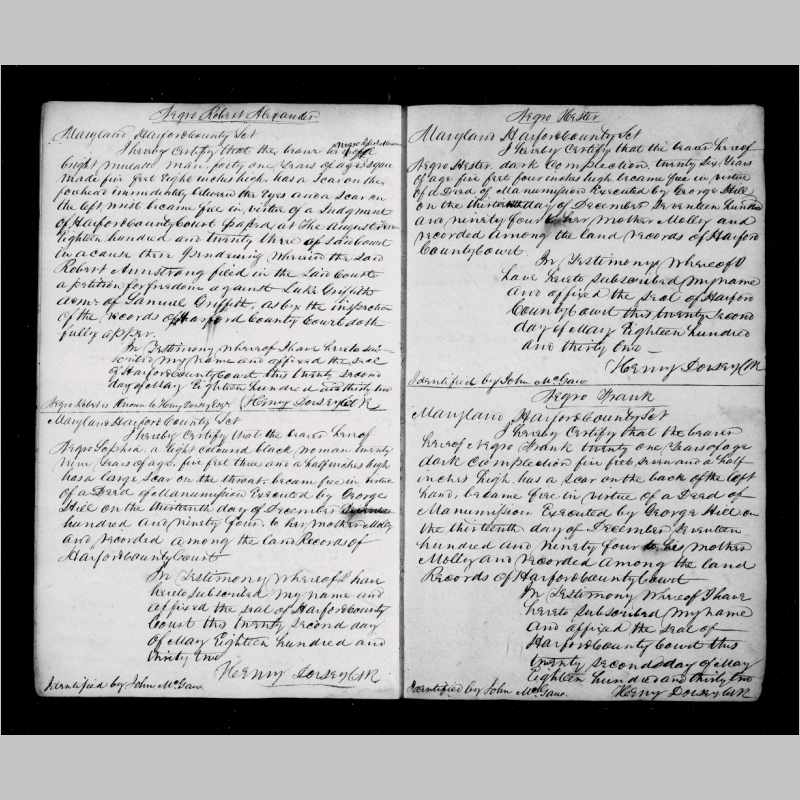 Negro Robert Alexander
Maryland Harford County Sct
I hereby Certify that the bearer hereof
bright mulatto man, forty one Years of age Square
made five feet Eight inches high, has a Scar on the
forehead immediately between the Eyes and a Scar on
the left wrist became free in virtue of a Judgment
of Harford County Court passed at the August
Eighteen hundred and twenty three of said Court
in a cause then depending wherein the said
Robert Armstrong filed in the Said Court
a petition for freedom against Luke Griffith
admr of Samuel Griffith, as by the inspection
of the records of Harford County Court doth
fully appear.
In Testimony whereof I have hereto sub-
scribed my name and affixed the seal
of Harford County Court this twenty second
day of May Eighteen hundred and thirty two
Negro Robert is Known to Henry Dorsey Esqr. Henry Dorsey Clk
Maryland Harford County Sct
I hereby Certify that the bearer hereof
Negro Sophia a light coloured black woman twenty
nine Years of age, five feet three and a half inches high
has a large Scar on the throat, became free in virtue
of a Deed of Manumission Executed by George
Hill on the thirteenth day of December Seventeen
hundred and ninety four to her mother Molly
and recorded among the land Records of
Harford County Court
In Testimony Whereof I have
hereto Subscribed my name and
affixed the seal of Harford County
Court this twenty Second day
of May Eighteen hundred and
thirty two
Henry Dorsey Clk
Identified by John McGaw.
Negro Hester
Maryland Harford County Sct
I hereby Certify that the bearer hereof
Negro Hester dark Complection, twenty Six Years
of age five feet four inches high became free in virtue
of a Deed of Manumission Executed by George Hill
on the thirteenth day of December Seventeen hundred
and ninety four to her mother Molley and
recorded among the land records of Harford
County Court
In Testimony Whereof I
have hereto Subscribed my name
and affixed the Seal of Harford
County Court this twenty second
day of May Eighteen hundred
and thirty two
Henry Dorsey Clk
Identified by John McGaw
Negro Frank
Maryland Harford County Sct
I hereby Certify that the bearer
hereof Negro Frank twenty one Years of age
dark Complection five feet Seven and a half
inches high has a Scar on the back of the left
hand, became free in virtue of a Deed of
Manumission Executed by George Hill on
the thirteenth day of December Seventeen
hundred and ninety four to his mother
Molley and recorded among the land
Records of Harford County Court
In Testimony Whereof I have
hereto Subscribed my name
and affixed the Seal of
Harford County Court this
twenty second day of May
Eighteen hundred and thirty two
Identified by John McGaw. Henry Dorsey Clk